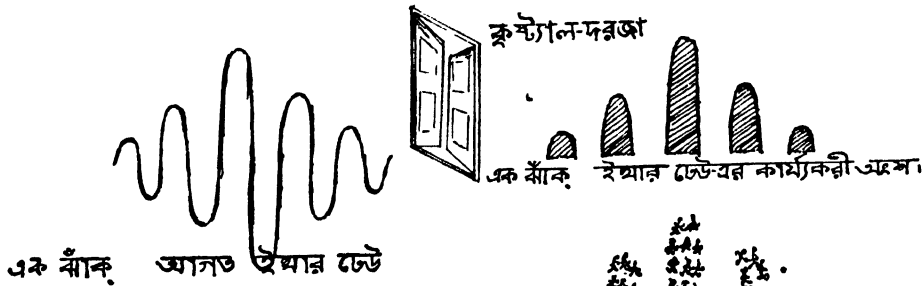 কৃষ্ট্যাল-দরজা
এক ঝাঁক ইথার ঢেউ-এর কার্য্যকরী অংশ।
এক ঝাঁক আগত ইথার ঢেউ